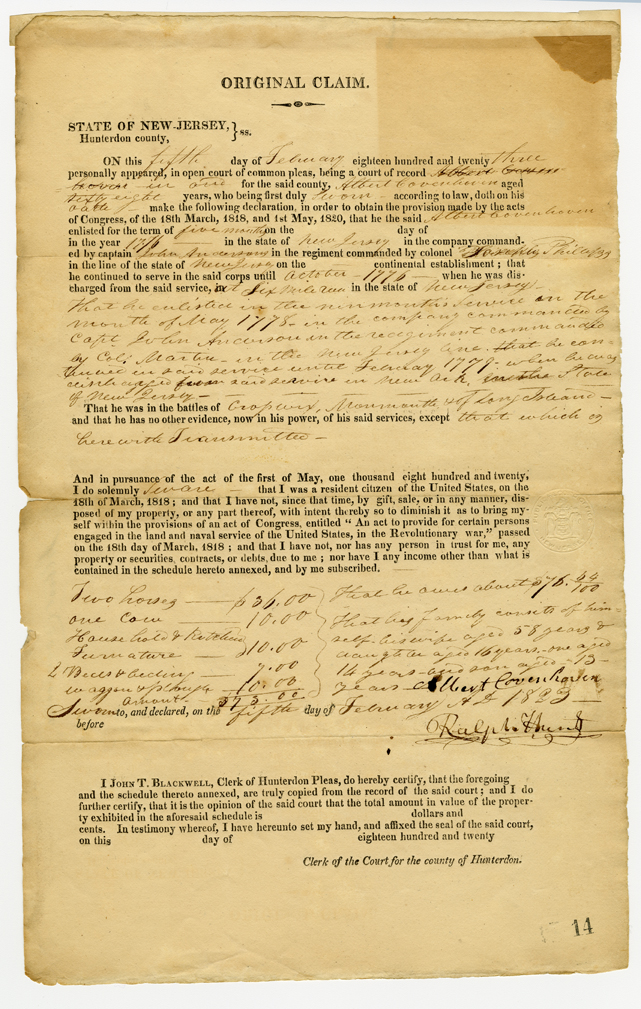 ORIGINAL CLAIM.
STATE OF NEW-JERSEY, } ss.
Hunterdon county,
ON this fifth day of February eighteen hundred and twenty three
personally appeared, in open court of common pleas, being a court of record Albert Coven
hoven in and for the said county, Albert Covenhoven aged
sixty eight years, who being first duly Sworn according to law, doth on his
oath make the following declaration, in order to obtain the provision made by the acts
of Congress, of the 18th March, 1818, and 1st May, 1820, that he the said Albert Covenhoven
enlisted for the term of five months on the day of
in the year 1776 in the state of New Jersey in the company command-
ed by captain John Anderson in the regiment commanded by colonel Joseph Phillips
in the line of the state of New Jersey on the continental establishment; that
he continued to serve in the said corps until October 1776 when he was dis-
charged from the said service, at Six Mile Run in the state of New Jersey
That he enlisted in the nine months service in the
month of May 1778 - in the company commanded by
Capt. John Anderson in the redegiment commanded
by Col. Martin - in the New Jersey line. that he con-
tinued in said service until February 1779. when he was
discharged from said service in New Ark, in the State
of New Jersey -
That he was in the battles of Monmouth & of Long Island -
and that he has no other evidence, now in his power, of his said services, except that which is
herewith Transmitted -
And in pursuance of the act of the first of May, one thousand eight hundred and twenty,
I do solemnly Sware that I was a resident citizen of the United States, on the
18th of March, 1818; and that I have not, since that time, by gift, sale, or in any manner, dis-
posed of my property, or any part thereof, with intent thereby so to diminish it as to bring my-
self within the provisions of an act of Congress, entitled “ An act to provide for certain persons
engaged in the land and naval service of the United States, in the Revolutionary war,” passed
on the 18th day of March, 1818; and that I have not, nor has any person in trust for me, any
property or securities, contracts, or debts, due to me; nor have I any income other than what is
contained in the schedule hereto annexed, and by me subscribed.
Two horses — $36.00
one Cow — 10.00
Household & Kitchen
Furnature — 10.00
2 Beds & beding — 7.00
waggon & plough — 10.00
Amount $73.00
That he owes about $76.64/100
That his family consists of him-
self - his wife aged 58 years &
daughter aged 16 years - one aged
14 years - and son aged - 13 -
years - Albert Covenhoven
Sworn to, and declared, on the fifth day of February A.D 1823
before
Ralph Hunt
I JOHN T. BLACKWELL, Clerk of Hunterdon Pleas, do hereby certify, that the foregoing
and the schedule thereto annexed, are truly copied from the record of the said court; and I do
further certify, that it is the opinion of the said court that the total amount in value of the proper-
ty exhibited in the aforesaid schedule is dollars and
cents. In testimony whereof, I have hereunto set my hand, and affixed the seal of the said court,
on this day of eighteen hundred and twenty
Clerk of the Court for the county of Hunterdon.
14